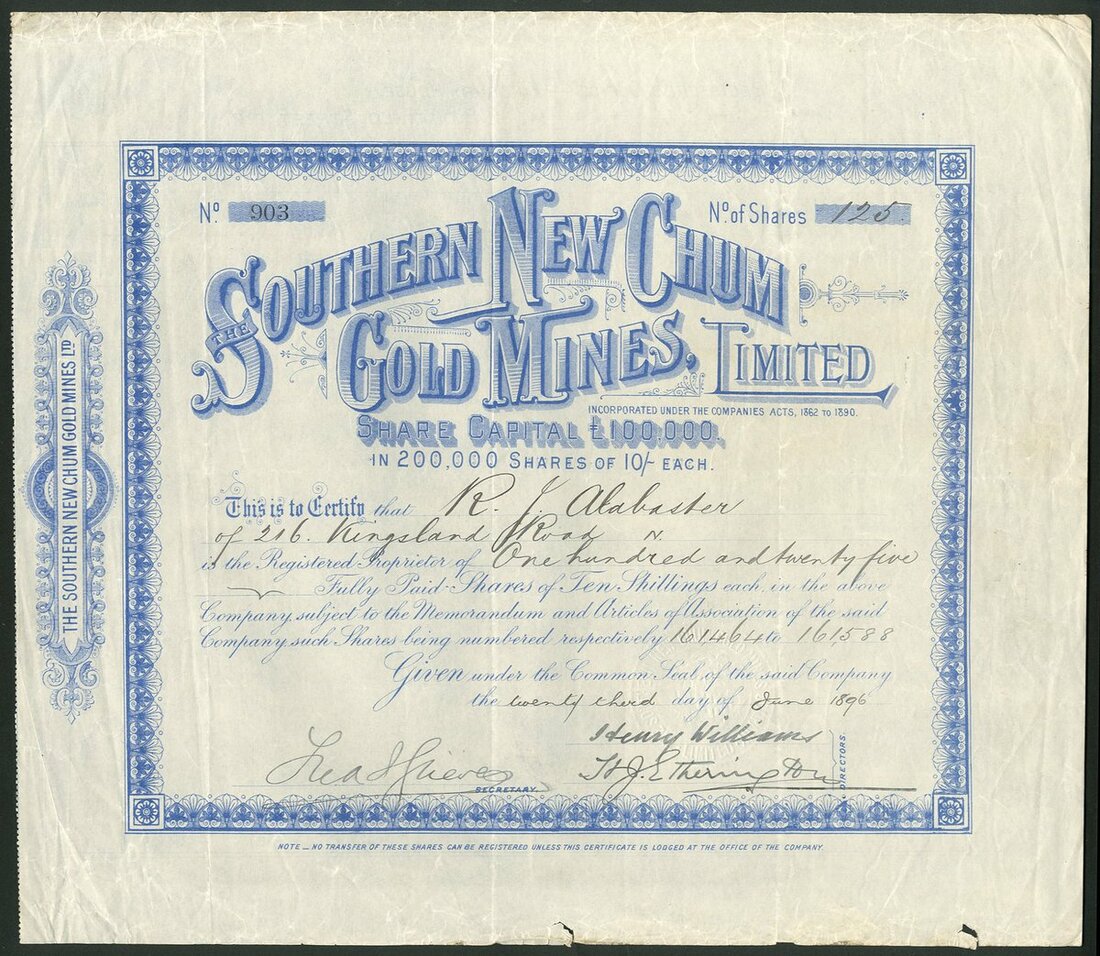 No. 903
No. of Shares 125
THE SOUTHERN NEW CHUM
GOLD MINES, LIMITED
INCORPORATED UNDER THE COMPANIES ACTS, 1862 TO 1890.
SHARE CAPITAL £100,000.
IN 200,000 SHARES OF 10/- EACH.
This is to Certify that R. J. Alabaster
of 216. Kingsland Road N.
is the Registered Proprietor of One hundred and twenty five
Fully Paid-Shares of Ten Shillings each, in the above
Company, subject to the Memorandum and Articles of Association of the said
Company, such Shares being numbered respectively 161464 to 161588
Given under the Common Seal, of the said Company
the twenty third day of June 1896
Henry Williams
H. J. Etherington
DIRECTORS.
SECRETARY.
NOTE _ NO TRANSFER OF THESE SHARES CAN BE REGISTERED UNLESS THIS CERTIFICATE IS LODGED AT THE OFFICE OF THE COMPANY.
THE SOUTHERN NEW CHUM GOLD MINES LTD